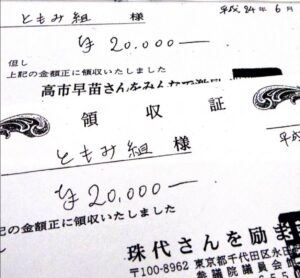 ともみ組 様 平成24年6月
¥20,000—
但し
上記の金額正に領収いたしました
高市早苗さんをみんな
領収証
ともみ組 様
平
¥20,000—
記の金額正に領収いたしました
珠代さんを励ま
〒100-8962 東京都千代田区永田
議院議会